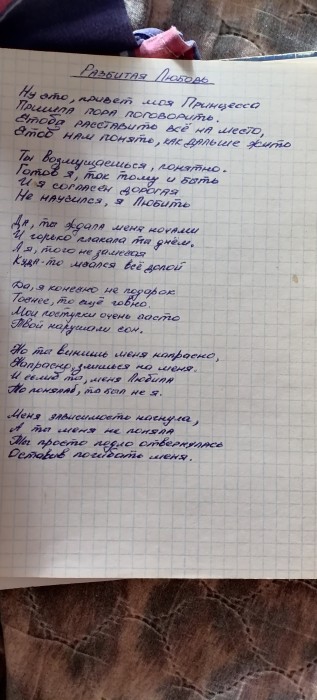 Разбитая Любовь
Ну это, привет моя Принцесса
Пришла пора поговорить.
Чтоба расставить всё на место,
Чтоб нам понять, как дальше жить
Ты возмущаешься, понятно.
Готов я, так тому и быть
И я согласен дорогая
Не научился, я Любить
Да, ты ждала меня ночами
И горько плакала ты днём.
А я, того не замечая
Куда-то мчался всё долой
Да, я конечно не подарок
Точнее, то ещё говно.
Мои поступки очень часто
Твой нарушали сон.
Но ты винишь меня напрасно,
Напрасно, злишься на меня.
И если б ты, меня Любила
То поняла б, то был не я.
Меня зависимость нагнула,
А ты меня не поняла
Ты просто подло отвернулась
Оставив погибать меня.